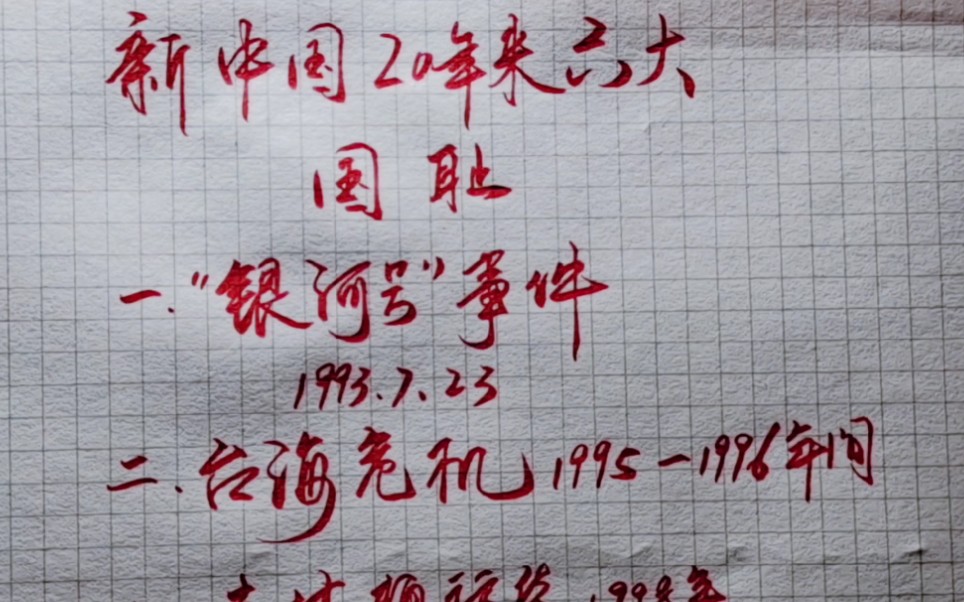 新中国20年来六大
国耻
一."银河号"事件
1993.7.23
二.台海危机1995-1996年间